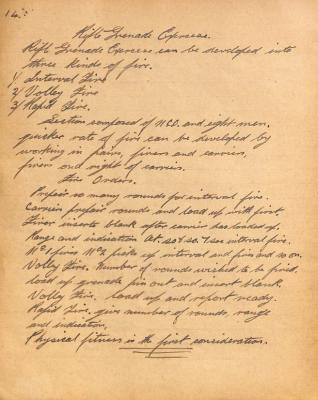 14.
Rifle Grenade Exercise.
Rifle Grenade Exercise can be developed into
three kinds of fire.
1/ Interval Fire
2/ Volley Fire
3/ Rapid Fire.
Section composed of N.C.O. and eight men.
quicker rate of fire can be developed by
working in pairs, firers and carriers,
firers on right of carriers.
Fire Orders.
Prepare so many rounds for interval fire.
Carriers prepare rounds and load up with first.
Firer inserts blank after carrier has loaded up.
Range and indication At. so & so 7 sec interval fire.
No 1 fires No 2 picks up interval and fires and so on.
Volley Fire. Number of rounds wished to be fired.
load up grenade pin out and insert blank.
Volley Fire. load up and report ready.
Rapid Fire. give number of rounds, range
and indication.
Physical fitness is the first consideration.